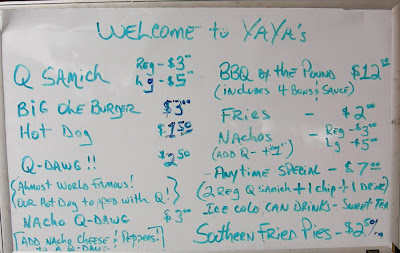 WELCOME to YAYA's
Q SAMICH Reg - $3.00
lg - $5.00
BIG OLE BURGER $3.00
Hot Dog $1.50
Q-DAWG!! $2.50
(Almost World Famous!
OUR Hot Dog topped with Q!)
NACHO Q-DAWG $3.00
[ADD NACHO CHEESE & PEPPERS!
to A Q-DAWG!]
BBQ by the POUND $12.00
(includes 4 Buns & SAUCE)
FRIES - $2.00
NACHOS - Reg - $3.00
(ADD Q - +$1.00) Lg - $5.00
- ANYTIME SPECIAL - $7.00
(2 Reg Q SAMICH + 1 chip + 1 DRINK)
ICE COLD CAN DRINKS - SWEET TEA
SOUTHERN FRIED PIES - $2.50